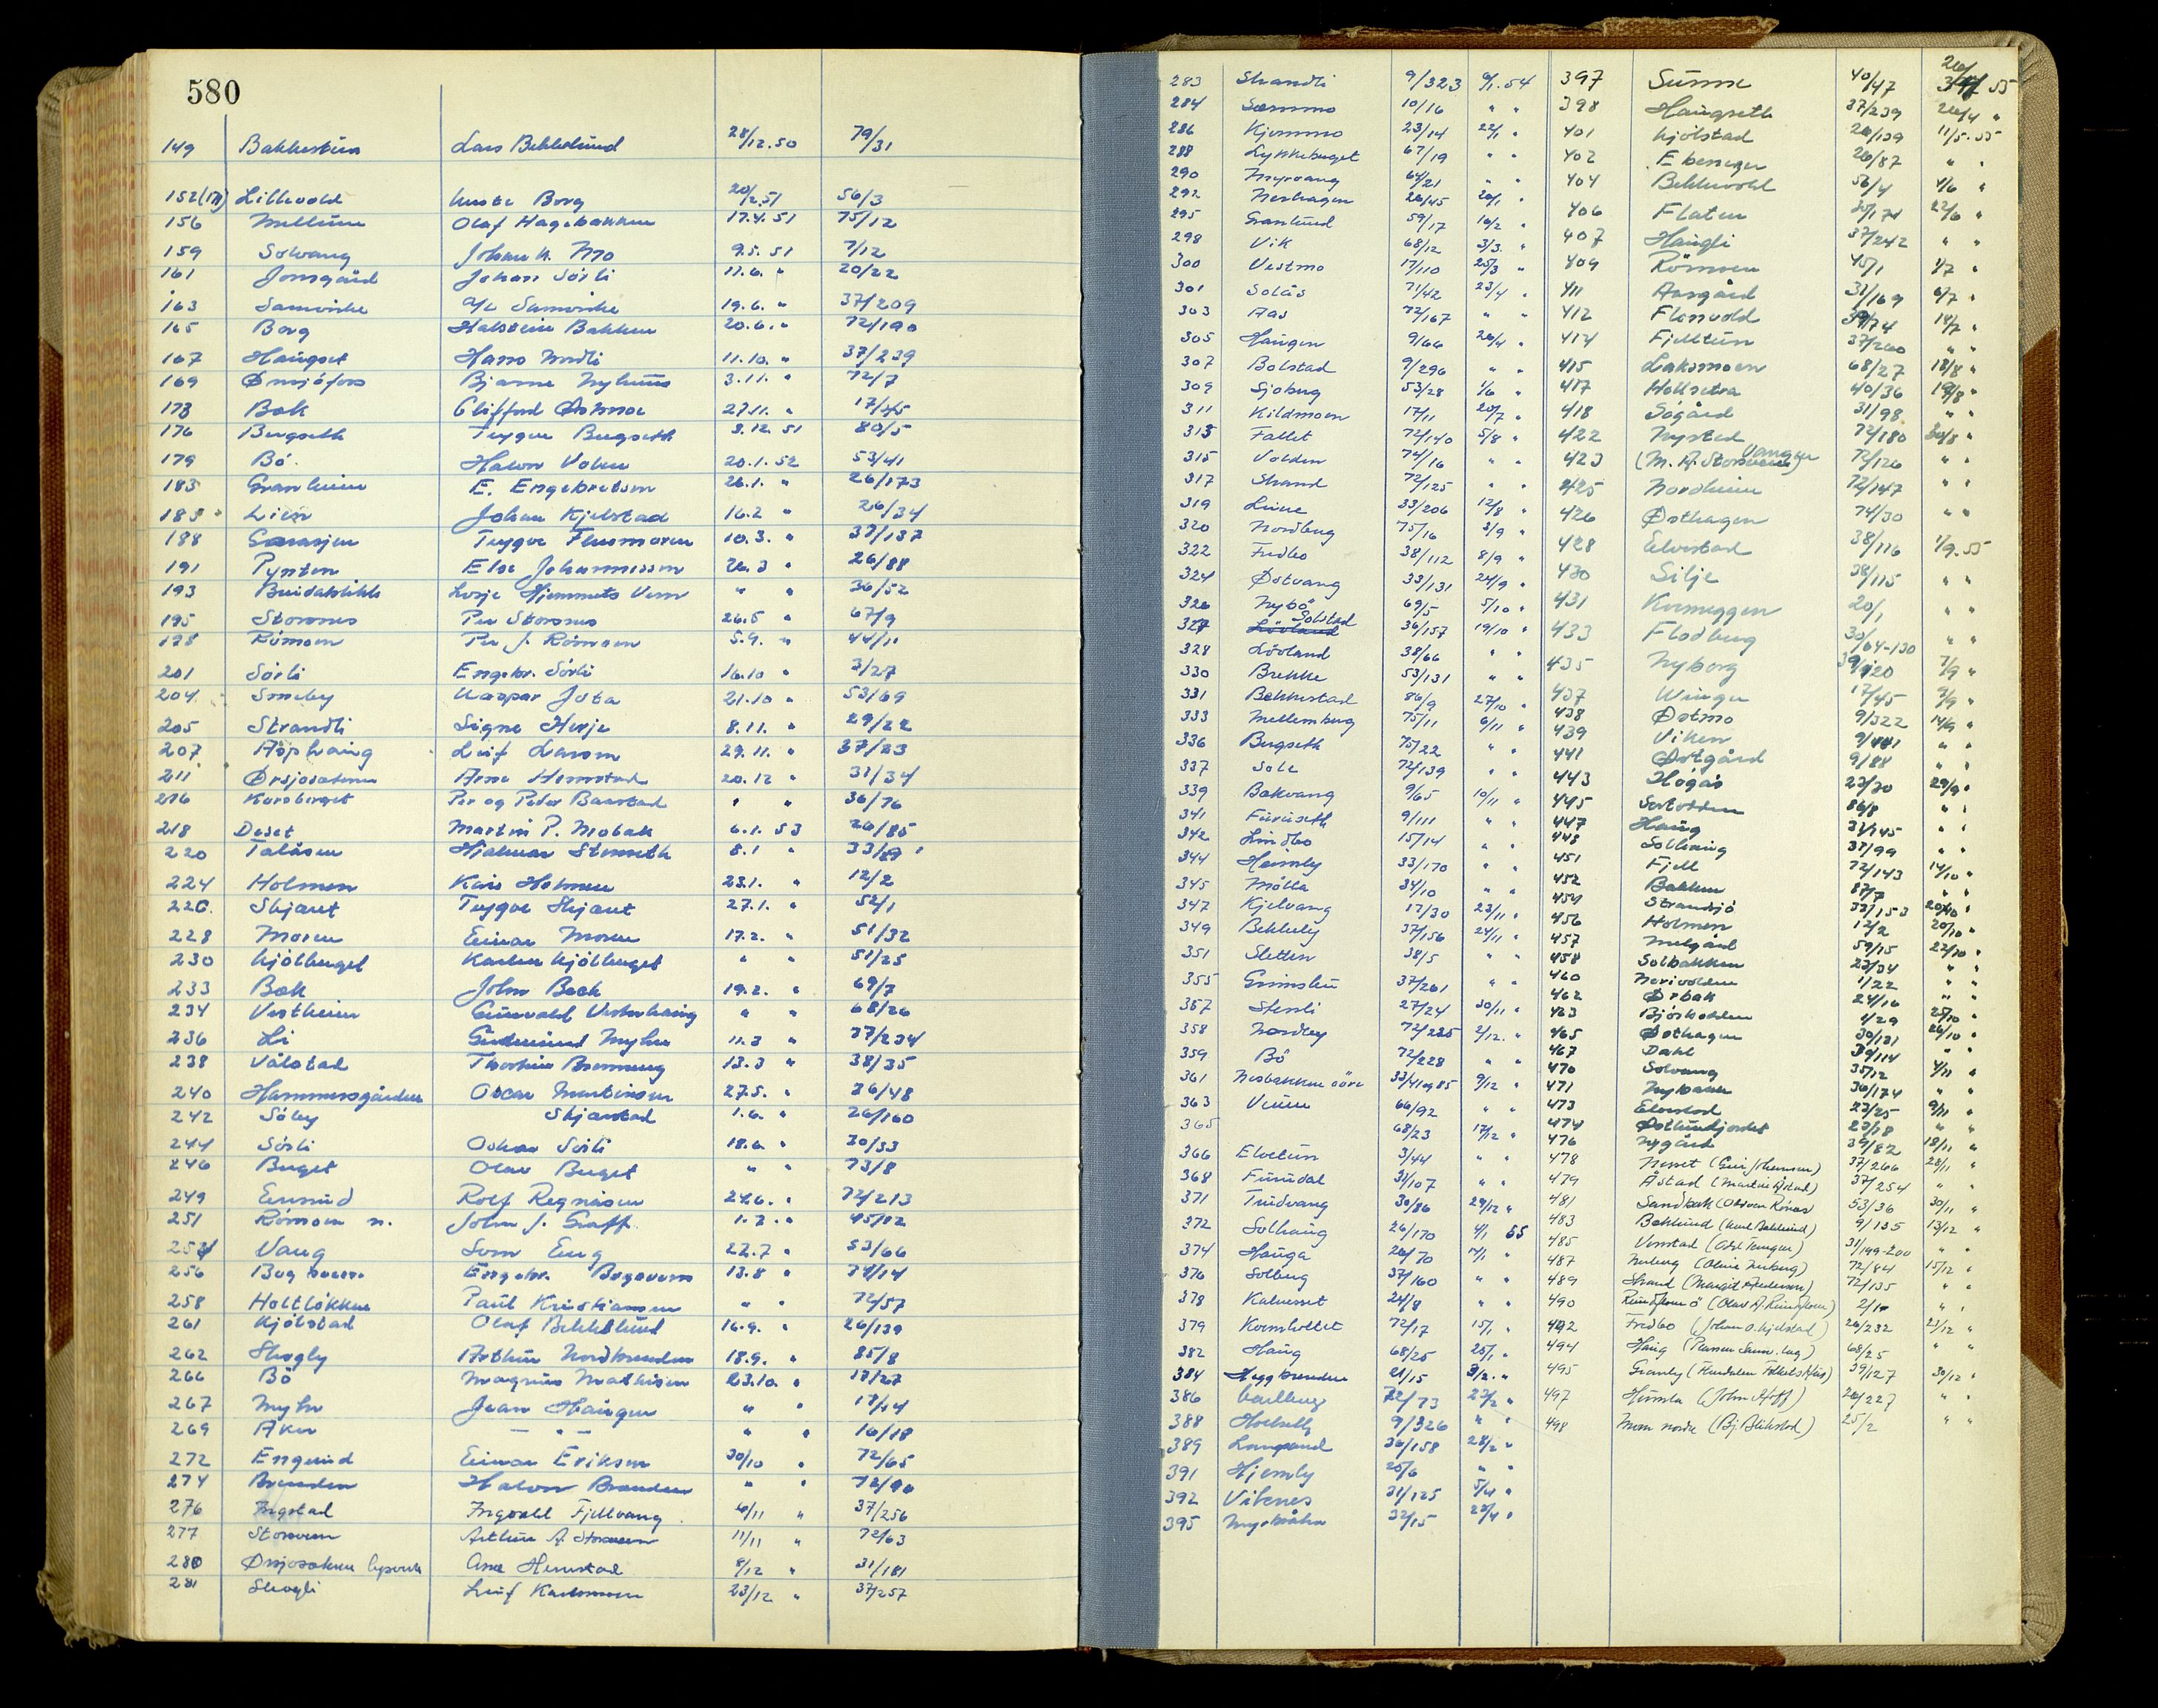 580
149 Bakkestua Lars Bekkelund 28/12.50 79/31
152 Lillevold Borg 20/2.51 56/3
156 Olaf Hagebakken 17.4.51 75/12
159 Solvang Johan Mo 9.5.51 7/12
161 Jonsgård Johan Sörli 11.6. " 20/22
163 Samvirke a/l Samvirke 19.6. " 37/209
165 Borg Halstein Bakken 20.6. " 72/190
167 Haugset Hans 11.10. " 37/239
169 Bjarne Nyhuus 3.11. " 72/7
173 Bak Clifford 27.11. " 17/45
176 Bergseth Trygve Bergseth 3.12.51 80/5
179 Bö. Halvor Volen 20.1.52 53/41
183 Granheim E. Engebretsen 26.1. " 26/173
185 Lien Johan Kjelstad 16.2 " 26/34
188 Trygve 10.3. " 37/137
191 Pynten Else Johannessen 26.3 " 26/88
193 Hjemmets Vern " " 36/52
195 Storsnes Per Storsnes 26.5 " 67/9
198 Römoen Per J. Römoen 5.9. " 44/11
201 Sörli Engebr. Sörli 16.10 " 3/27
204 Smeby Kaspar 21.10 " 53/69
205 Strandli Signe Herje 8.11. " 29/22
207 Asphaug Leif Larsen 29.11. " 37/23
211 Arne Hemstad 20.12 " 31/34
216 Korsberget Per og Peder Baastad " " 36/76
218 Deset Martin P. Mobak 6.1.53 26/85
220 Hjalmar Stenseth 8.1 " 33/89
224 Holmen Kåre Holmen 23.1. " 12/2
226. Skjæret Trygve Skjæret 27.1. " 52/1
228 Moren Einar Moren 17.2. " 51/32
230 Kjölberget Karlen Kjölberget " " 51/25
233 Bak John Beck 19.2. " 69/7
234 Vestheim Gunvald Vesterhaug " " 68/26
236 Li Gudmund Myhre 11.3 " 37/234
238 Vålstad Thorleiv 13.3 " 38/35
240 Hammersgården Oscar Martinsen 27.5. " 36/48
242 Söby Skjærstad 1.6. " 26/160
244 Sörli Oskar Sörli 18.6. " 30/33
246 Berget Olav Berget " " 73/8
249 Rolf Regnåsen 24.6. " 72/213
251 Römoen n. John J. Graff 1.7. " 45/12
Vang Eng 22.7 " 53/66
256 Engebr. 13.8 " 74/14
258 Holtlökken Paul Kristiansen " " 72/57
261 Kjölstad Olaf Bekkelund 16.9. " 26/139
262 Skogly Arthur Nordbrenden 18.9. " 85/8
266 Bö Magnus Mathisen 23.10. " 17/27
267 Myhr Jean Haugen " " 17/14
269 Aker — " — " " 16/18
272 Engerud Einar Eriksen 30/10 " 72/65
274 Brenden Halvor Brenden " " 72/90
276 Ingstad Ingvald Fjellvang 6/11 " 37/256
277 Storveen Arthur A. Storveen 11/11 " 72/63
280 Arne Hemstad 8/12 " 31/181
281 Skogli Leif Karlsmoen 23/12 " 37/257
283 Strandli 9/323 9/1.54
284 10/16 " "
286 Kjemmo 23/14 22/1 "
288 Lykkeberget 67/19 " "
290 Myrvang 64/21 " "
292 Nerhagen 26/45 26/1 "
295 Granlund 59/17 16/2 "
298 Vik 68/12 3/3. "
300 Vestmo 17/110 25/3 "
301 Solås 71/42 23/4 "
303 Aas 72/167 " "
305 Haugen 9/66 26/4 "
307 Bolstad 9/296 " "
309 Sjöberg 53/28 1/6 "
311 Kildmoen 17/11 20/7 "
313 Fallet 72/140 5/8 "
315 Volden 74/16 " "
317 Strand 72/125 " "
319 Linne 33/206 12/8 "
320 Nordberg 75/16 3/9 "
322 Fredbo 38/112 8/9 "
324 Østvang 33/131 24/9 "
326 Nybö 69/5 5/10 "
327 Solstad 36/157 19/10 "
328 Lövland 38/66 " "
330 Brekke 53/131 " "
331 Bekkestad 86/9 27/10 "
333 Mellemberg 75/11 6/11 "
336 Bergseth 75/22 " "
337 Sole 72/139 " "
339 Bakvang 9/65 10/11 "
341 Furuseth 9/111 " "
342 Lindbo 15/14 " "
344 Heimly 33/170 " "
345 Mölla 34/10 " "
347 Kjelvang 17/30 23/11 "
349 Bekkely 37/156 24/11 "
351 Sletten 38/5 " "
355 37/261 " "
357 Stenli 27/24 30/11 "
358 Nordby 72/225 2/12. "
359 Bö 72/228 " "
361 Nesbakken 33/41og85 9/12 "
363 66/92 " "
365 68/23 17/12 "
366 Elvetun 3/44 " "
368 Furudal 31/107 " "
371 Trudvang 30/86 29/12 "
372 Solhaug 26/170 4/1 55
374 Hauga 26/70 7/1 "
376 Solberg 37/160 " "
378 24/8 " "
379 Kornhollet 72/17 15/1 "
382 Haug 68/25 25/1 "
384 Heggbrenden 21/15 3/2. "
386 72/73 23/2 "
388 9/326 " "
389 36/158 28/2 "
391 Hjemly 25/6 " "
392 Vibenes 31/125 5/4 "
395 32/15 23/4 "
397 40/47 55
398 Haugseth 37/239 26/4 "
401 Kjölstad 26/139 11/5.55
402 Ebeneser 26/87 " "
404 Bekkevold 56/4 4/6 "
406 Flaten 35/174 22/6 "
407 Haugli 37/242 " "
409 Römoen 45/1 1/7 "
411 Aasgård 31/169 6/7 "
412 39/74 14/7 "
414 Fjelltun 37/260 " "
415 Laksmoen 68/27 18/8 "
417 40/36 19/8 "
418 Sögård 31/98 " "
422 Nysted 72/180 30/8 "
423 72/126 " "
425 Nordheim 72/147 " "
426 Østhagen 74/30 " "
428 Elvestad 38/116 1/9.55
430 Silje 38/115 " "
431 20/1 " "
433 Flodberg 30/64-130 " "
435 Nyborg 39/120 7/9 "
437 Winger 17/45 9/9 "
438 Østmo 9/322 14/9 "
439 Viken 9/441 " "
441 Østgård 9/88 " "
443 Högås 23/30 29/9 "
445 86/8 " "
447 Haug 33/145 " "
448 Solhaug 37/99 " "
451 Fjell 72/143 14/10 "
452 Bakken 87/7 " "
454 Strandsjö 33/153 20/10 "
456 Holmen 12/2 20/10 "
457 Melgård 59/15 22/10 "
458 Solbakken 23/34 " "
460 Nerivolden 1/22 " "
462 Ørbak 24/16 " "
463 1/29 25/10 "
465 Østhagen 30/131 26/10 "
467 Dahl 39/114 " "
470 Solvang 35/12 4/11 "
471 Nybakken 36/174 " "
473 Elvestad 23/25 9/11 "
474 23/18 " "
476 Nygård 39/82 18/11 "
478 Nesset (Geir Johansen) 37/266 28/11 "
479 Åstad (Martin Åstad) 37/254 " "
481 Sandbak 53/36 30/11 "
483 Beklund 9/135 13/12 "
485 31/199-200 " "
487 Nerberg (Oline Nerberg) 72/84 15/12 "
489 Strand (Margit Andersen) 72/135 " "
490 2/1 " "
492 Fredbo (Johan O. Kjelstad) 26/232 23/12 "
494 Haug 68/25 " "
495 Granly 39/127 30/12 "
497 (John Hoff) 26/227 " "
498 25/2 " "